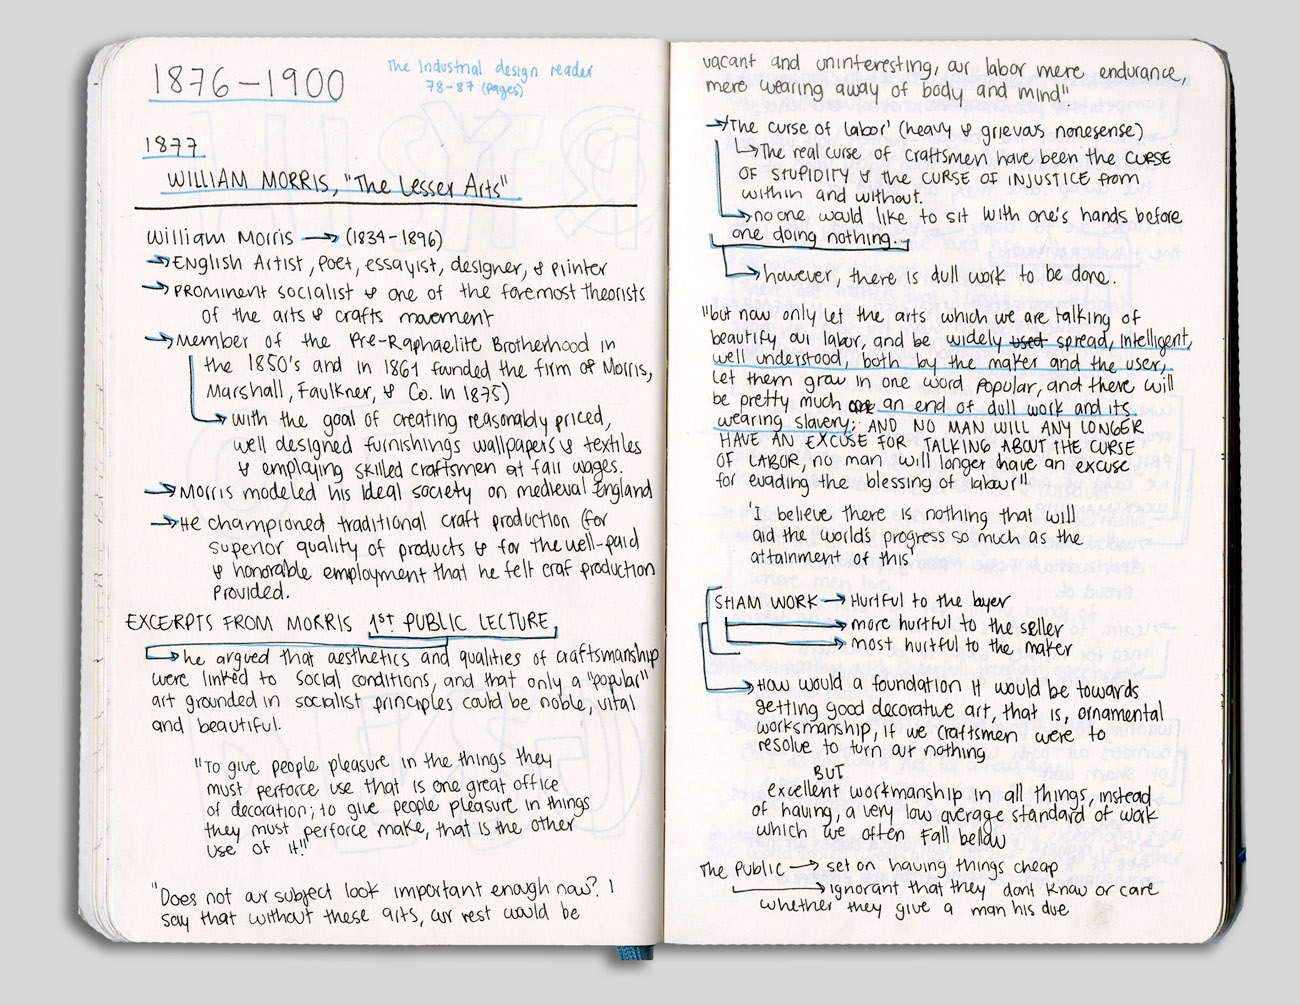 1876-1900
The Industrial design reader
78-87 (pages)
1877
WILLIAM MORRIS, "The Lesser Arts"
William Morris → (1834-1896)
→ English Artist, Poet, essayist, designer, & printer
→ PROMINENT socialist & one of the foremost theorists
of the arts & crafts movement
→ Member of the Pre-Raphaelite Brotherhood in
the 1850's and in 1861 founded the firm of Morris,
Marshall, Faulkner, & Co. In 1875)
→ with the goal of creating reasonably priced,
well designed furnishings wallpapers & textiles
& employing skilled craftsmen at fair wages.
→ Morris modeled his Ideal society on medieval England
→ He championed traditional craft production (for
superior quality of products & for the well-paid
& honorable employment that he felt craf production
Provided.
EXCERPTS FROM MORRIS 1st PUBLIC LECTURE
→ he argued that aesthetics and qualities of craftsmanship
were linked to social conditions, and that only a "popular"
art grounded in socialist principles could be noble, vital
and beautiful.
"To give people pleasure in the things they
must perforce use that is one great office
of decoration; to give people pleasure in things
they must perforce make, that is the other
use of it!"
"Does not our subject look important enough now? I
say that without these arts, our rest would be
vacant and uninteresting, our labor mere endurance,
mere wearing away of body and mind"
→ 'The curse of labor' (heavy & grievous nonesense)
→ The real curse of craftsmen have been the CURSE
OF STUPIDITY & the CURSE OF INJUSTICE from
within and without.
→ no one would like to sit with one's hands before
one doing nothing.
→ however, there is dull work to be done.
"but now only let the arts which we are talking of
beautify our labor, and be widely used spread, intelligent,
well understood, both by the maker and the user,
let them grow in one word Popular, and there will
be pretty much an end of dull work and its
wearing slavery; AND NO MAN WILL ANY LONGER
HAVE AN EXCUSE FOR TALKING ABOUT THE CURSE
OF LABOR, no man will longer have an excuse
for evading the blessing of labour"
'I believe there is nothing that will
aid the world's progress so much as the
attainment of this'
SHAM WORK → Hurtful to the buyer
→ more hurtful to the seller
→ most hurtful to the maker
→ How would a foundation it would be towards
getting good decorative art, that is, ornamental
worksmanship, if we craftsmen were to
resolve to turn out nothing
BUT
excellent workmanship in all things, instead
of having, a very low average standard of work
which we often fall below
The Public → set on having things cheap
→ ignorant that they dont know or care
whether they give a man his due